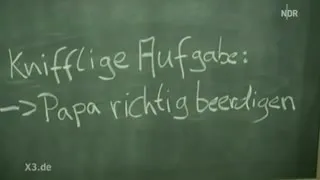 NDR
Knifflige Aufgabe:
-> Papa richtig beerdigen
X3.de